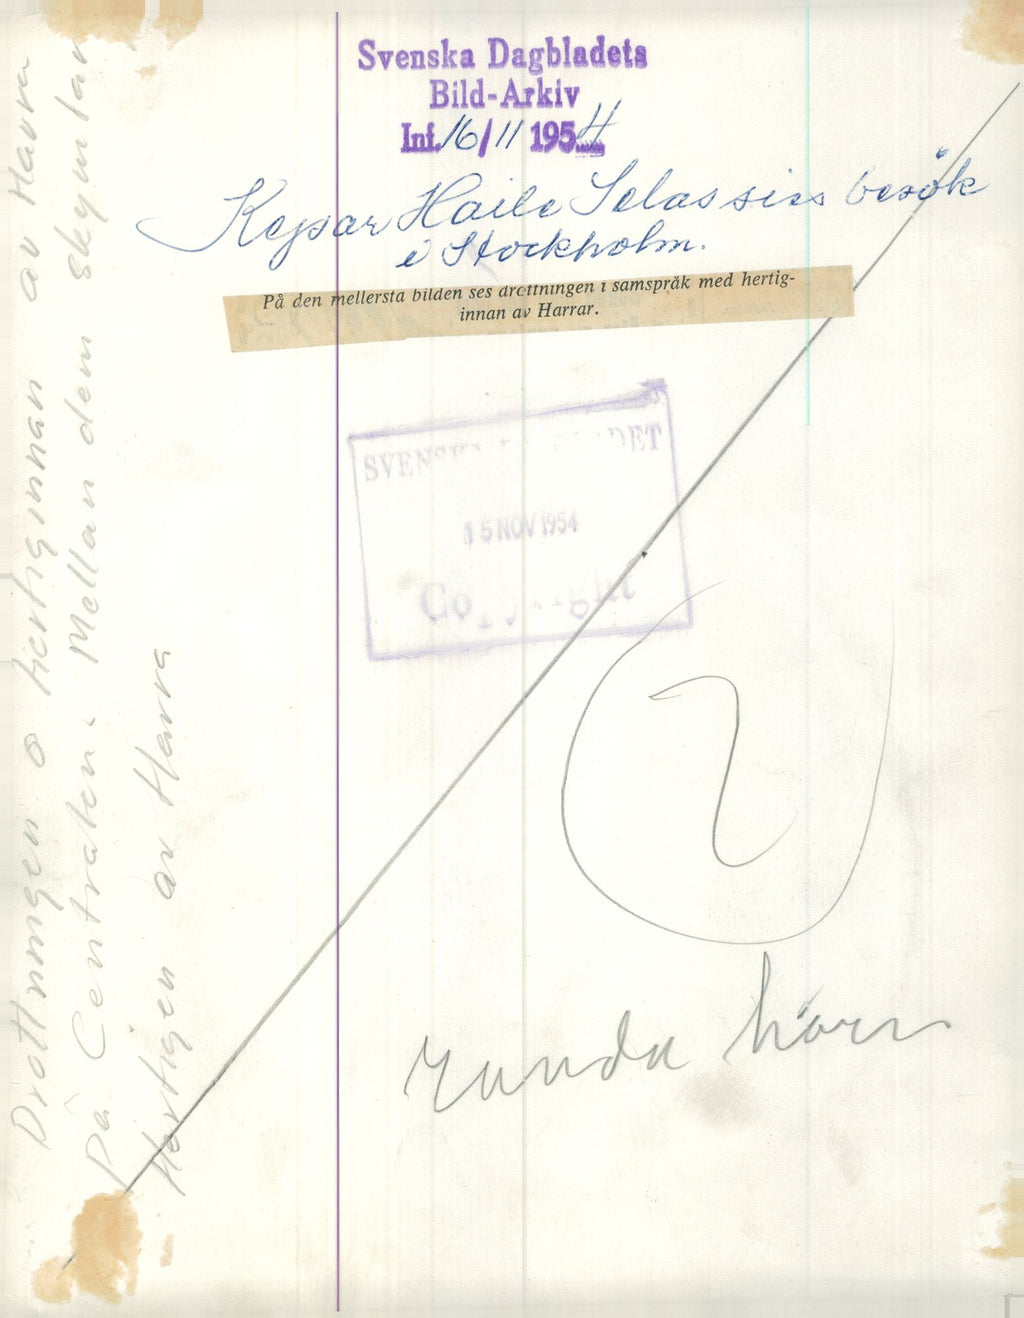 Svenska Dagbladets
Bild-Arkiv
Inf. 16/11 1954
Kejsar Haile Selassies besök
i Stockholm.
På den mellersta bilden ses drottningen i samspråk med hertig-
innan av Harrar.
SVENSKA DAGBLADET
15 NOV 1954
Copyright
2
runda hörn
Drottningen o hertiginnan av Harra
på Centralen. Mellan dem skymtar
Hertigen av Harra